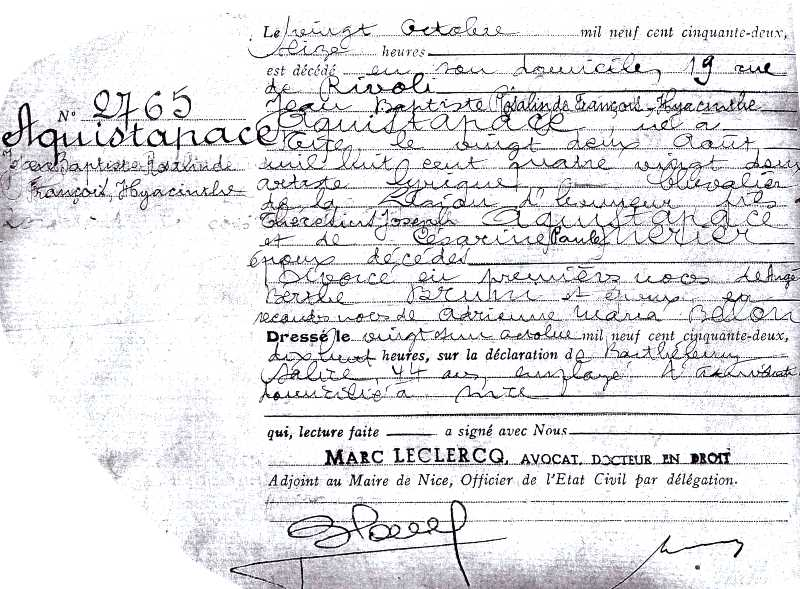 N° 2765
Aquistapace
Jean Baptiste Rosalinde
François, Hyacinthe
Le vingt octobre mil neuf cent cinquante-deux,
seize heures
est décédé en son domicile, 19 rue
de Rivoli
Jean Baptiste Rosalinde François, Hyacinthe
Aquistapace, né à
Nice, le vingt deux Août,
mil huit cent quatre vingt deux
artiste lyrique Chevalier
de la Légion d'honneur fils
Joseph Aquistapace
et de Césarine Paule
époux décédés
Divorcé en premières noces de
Berthe Bruni et époux en
secondes noces de Adrienne Maria Bellon
Dressé le vingt et un octobre mil neuf cent cinquante-deux,
dix neuf heures, sur la déclaration de Barthélemy
44 ans, employé
domicilié à Nice
qui, lecture faite a signé avec Nous
MARC LECLERCQ, AVOCAT, DOCTEUR EN DROIT
Adjoint au Maire de Nice, Officier de l'Etat Civil par délégation.